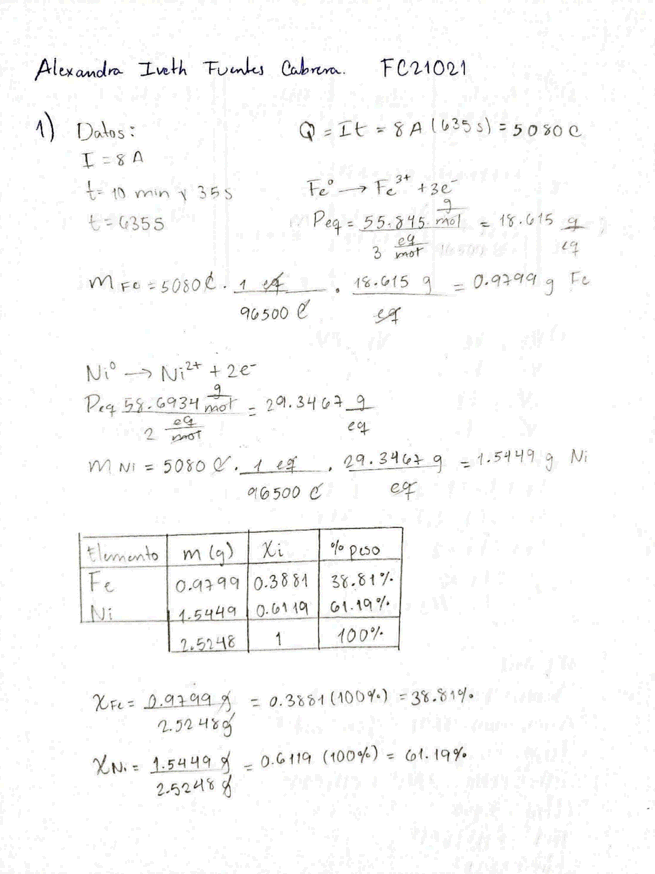 Alexandra Iveth Fuentes Cabrera. FC21021
1) Datos: Q = It = 8 A (635 s) = 5080 C
I = 8 A
t = 10 min y 35 s Fe° → Fe³⁺ + 3e⁻
t = 635 s Peq = 55.845 g/mol / 3 eq/mol = 18.615 g/eq
m Fe = 5080 C · 1 eq / 96500 C · 18.615 g / eq = 0.9799 g Fe
Ni° → Ni²⁺ + 2e⁻
Peq 58.6934 g/mol / 2 eq/mol = 29.3467 g/eq
m Ni = 5080 C · 1 eq / 96500 C · 29.3467 g / eq = 1.5449 g Ni
Elemento m (g) Xi % peso
Fe 0.9799 0.3881 38.81%
Ni 1.5449 0.6119 61.19%
2.5248 1 100%
X Fe = 0.9799 g / 2.5248 g = 0.3881 (100%) = 38.81%
X Ni = 1.5449 g / 2.5248 g = 0.6119 (100%) = 61.19%